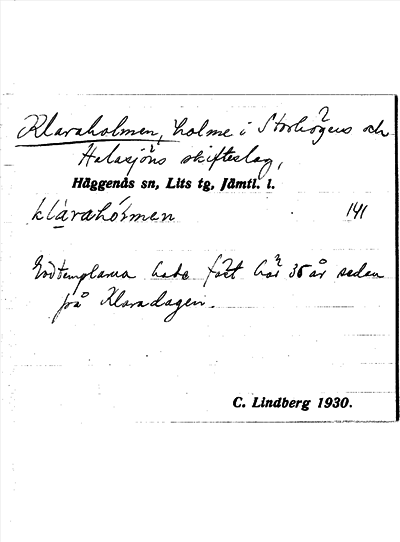 Klaraholmen, holme i Storhögens och
Halasjöns skifteslag,
Häggenås sn, Lits tg, Jämtl. l.
klàrahól̀men 141
Godtemplarna hade fäst här 35 år sedan
på Klaradagen.
C. Lindberg 1930.